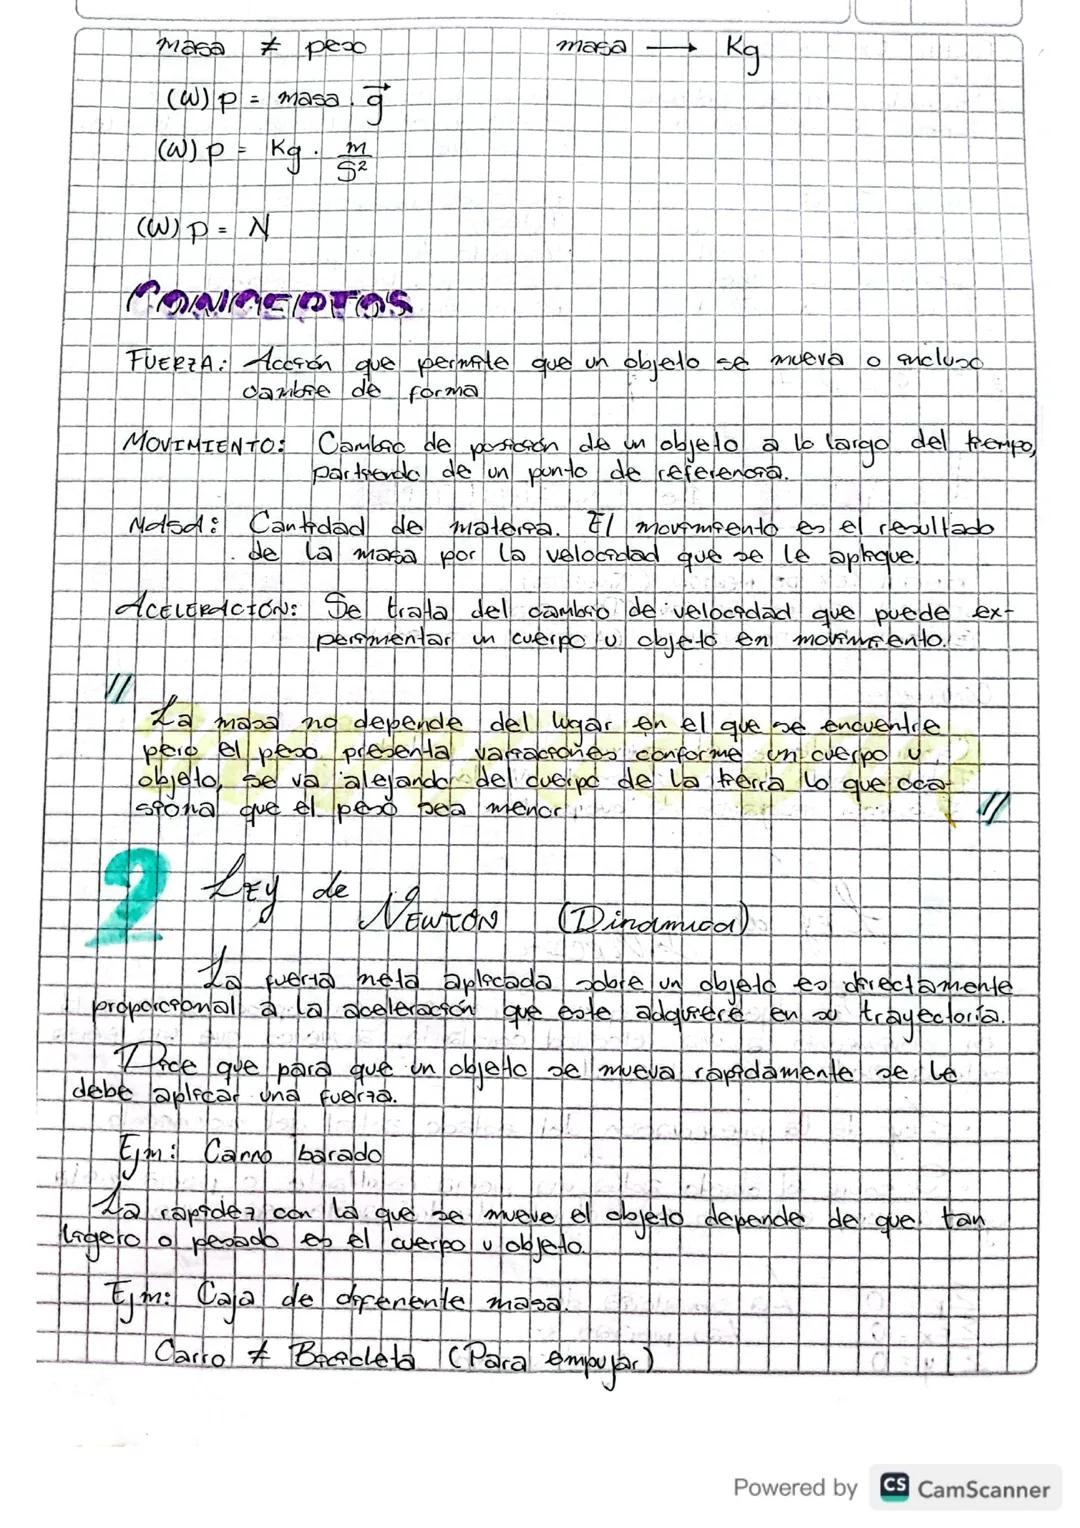 masa ≠ peso masa → Kg
(W) p = masa . g⃗
(W) p = Kg . m/s²
(W) p = N
CONCEPTOS
FUERZA: Acción que permite que un objeto se mueva o incluso
cambie de forma
MOVIMIENTO: Cambio de posición de un objeto a lo largo del tiempo,
partiendo de un punto de referencia.
MASA: Cantidad de materia. El movimiento es el resultado
de la masa por la velocidad que se le aplique.
ACELERACIÓN: Se trata del cambio de velocidad que puede ex-
perimentar un cuerpo u objeto en movimiento.
"
La masa no depende del lugar en el que se encuentre
pero el peso presenta variaciones conforme un cuerpo u
objeto, se va alejando del cuerpo de la tierra lo que oca-
siona que el peso sea menor.
"
2 LEY de NEWTON (Dinamica)
La fuerza neta aplicada sobre un objeto es directamente
proporcional a la aceleración que este adquiere en su trayectoria.
Dice que para que un objeto se mueva rapidamente se le
debe aplicar una fuerza.
Ejm: Carro barado
La rapidez con la que se mueve el objeto depende de que tan
ligero o pesado es el cuerpo u objeto.
Ejm: Caja de diferente masa.
Carro ≠ Bicicleta (Para empujar)
Powered by CS CamScanner